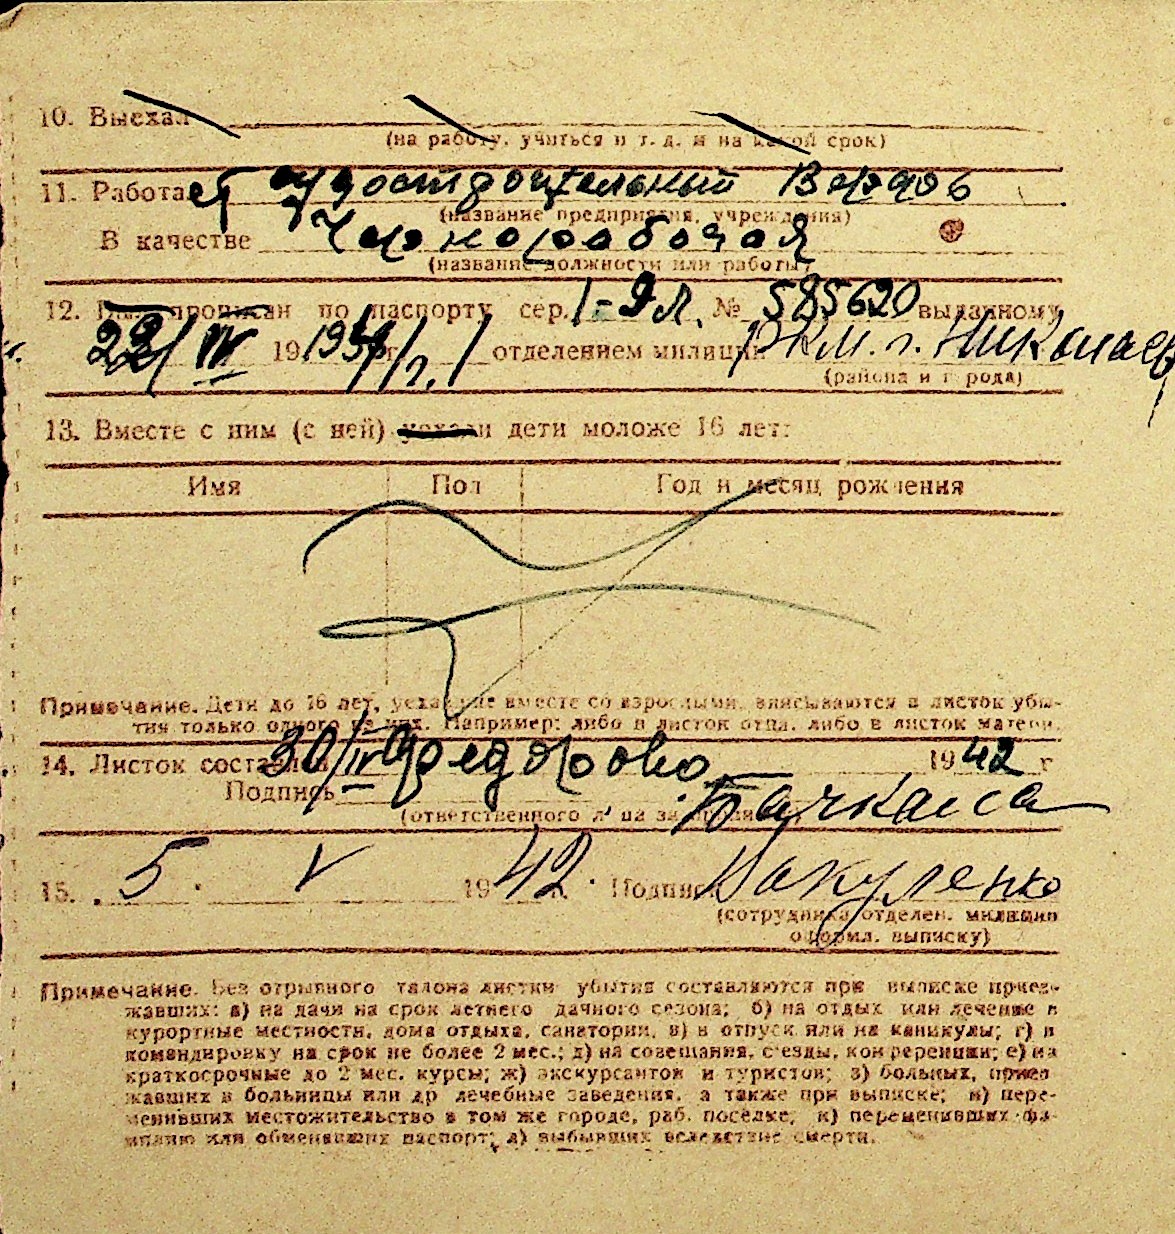 10. Выехал
(на работу, учиться и т. д. и на какой срок)
11. Работает судостроительный
(название предприятия, учреждения)
В качестве Чернорабочая
(название должности или работы)
12. прописан по паспорту сер. № 585620 выданному
22/ 19 г. отделением милиции РКМ. г. Николаев
(района и города)
13. Вместе с ним (с ней) уехали дети моложе 16 лет:
Имя Пол Год и месяц рождения
Примечание. Дети до 16 лет, уехавшие вместе со взрослыми, вписываются в листок убы-
тия только одного из них. Например: либо в листок отца, либо в листок матери.
14. Листок составлен 30/IV 1942 г
Подпись
(ответственного лица за
15. 5. V 1942. Подпись Вакуленко
(сотрудника отделен. милиции
оформл. выписку)
Примечание. Без отрывного талона листки убытия составляются при выписке приез-
жавших: а) на дачи на срок летнего дачного сезона; б) на отдых или лечение в
курортные местности, дома отдыха, санатории, в) в отпуск или на каникулы; г) в
командировку на срок не более 2 мес.; д) на совещания, с'езды, конференции; е) на
краткосрочные до 2 мес. курсы; ж) экскурсантов и туристов; з) больных, приез
жавших в больницы или др лечебные заведения, а также при выписке; и) пере-
менивших местожительство в том же городе, раб. поселке, к) переменивших фа-
милию или обменявших паспорт; л) выбывших вследствие смерти.